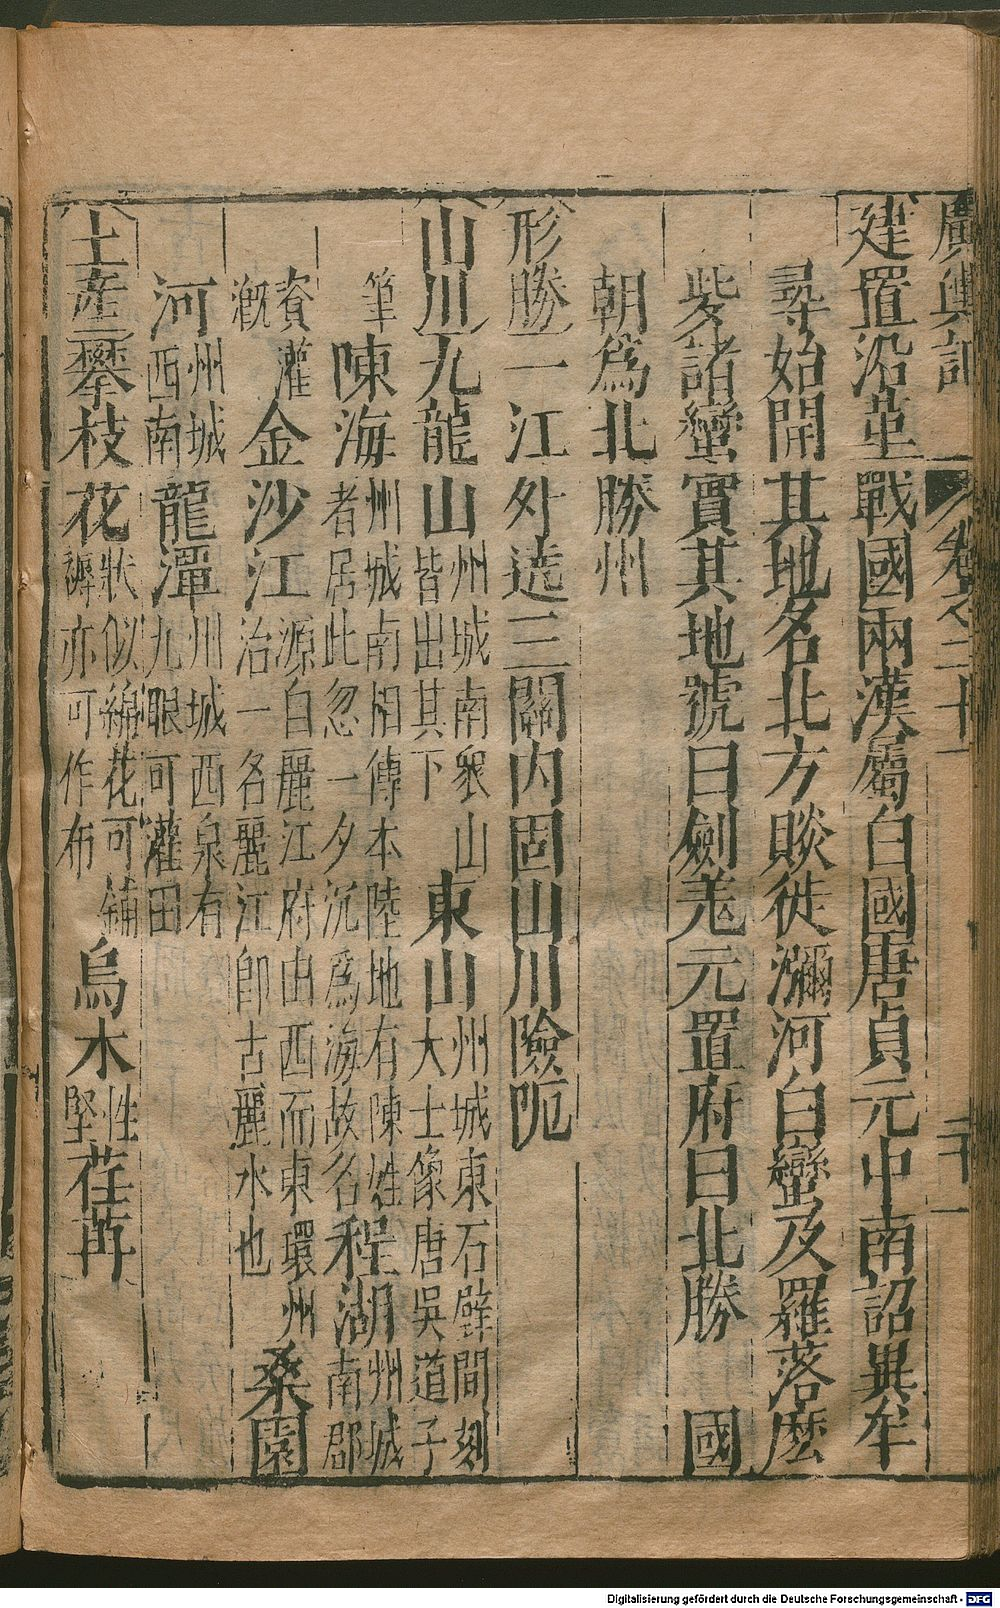 廣輿記 卷之二十一 二十一
建置沿革戰國兩漢屬白國唐貞元中南詔異牟
尋始開其地名北方賧徙瀰河白蠻及羅落麼
些諸蠻實其地號曰劍羌元置府曰北勝 國
朝爲北勝州
形勝二江外遶三關内固山川險阨
山川九龍山州城南衆山皆出其下東山州城東石壁間刻大士像唐吳道子
筆陳海州城南相傳本陸地有陳姓者居此忽一夕沉爲海故名程湖州城南郡
資灌漑金沙江源自麗江府由西而東環州治一名麗江卽古麗水也桑園
河州城西南龍潭州城西泉有九眼可灌田
土産攀枝花狀似綿花可鋪褥亦可作布烏木性堅荏苒
Digitalisierung gefördert durch die Deutsche Forschungsgemeinschaft - DFG